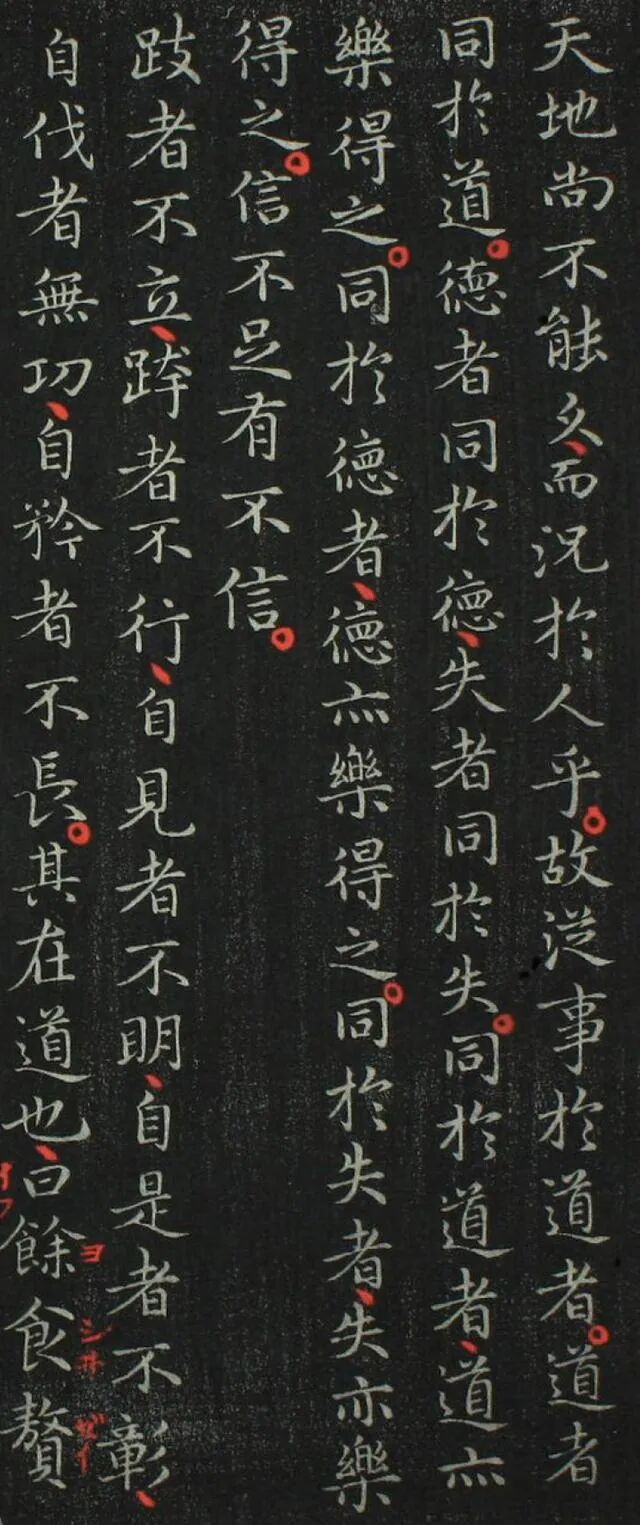 天地尚不能久、而況於人乎。故從事於道者。道者
同於道。徳者同於徳、失者同於失。同於道者、道亦
樂得之。同於徳者、徳亦樂得之。同於失者、失亦樂
得之。信不足有不信。
跂者不立、跨者不行、自見者不明、自是者不彰、
自伐者無功、自矜者不長。其在道也、曰餘食贅
イフ
ヨ
シヰ
ゼイ